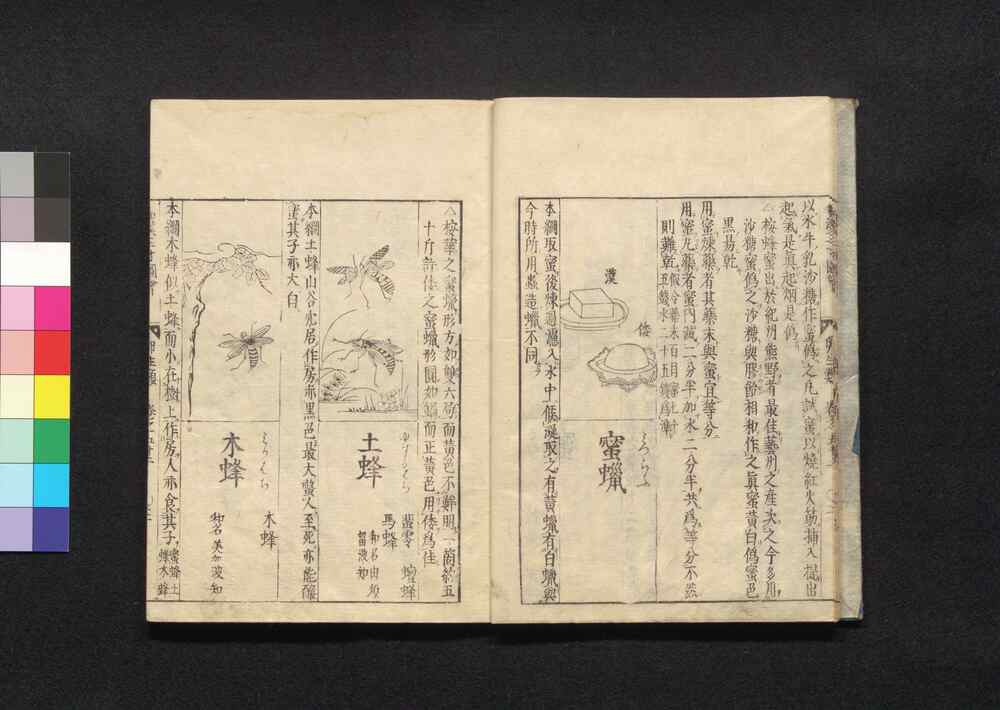 以水牛乳沙糖作蜜偽之凡試蜜以燒紅火筯揷入提出
起氣是眞起烟是偽
△按蜂蜜出於紀州熊野者最佳藝州之產次之今多用
沙糖蜜偽之沙糖與膠飴相和作之眞蜜黃白偽蜜色
黑易乾
用蜜煉藥者其藥末與蜜宜等分
用蜜丸藥者蜜內減二分半加水二分半共爲等分不然
則難乾
漢
倭
蜜蠟
本綱取蜜後煉過濾入水中候凝取之有黃蠟有白蠟與
今時所用蟲造蠟不同
△按華之蜜蠟形方如雙六砀而黃色不鮮明一箇約五
十斤許倭之蜜蠟形圓如餅而正黃色用倭爲佳
土蜂
蜚零 蟺蜂
馬蜂
本綱土蜂山谷穴居作房赤黑色最大螫人至死亦能釀
蜜其子亦大白
木蜂
木蜂
和名美加波知
本綱木蜂似土蜂而小在樹上作房人亦食其子